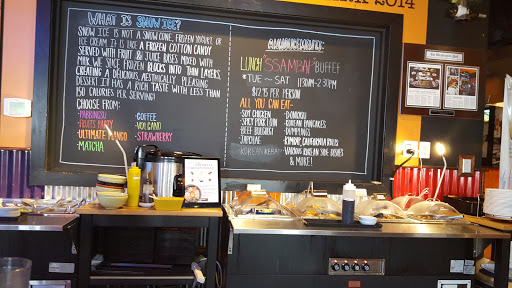 2014
WHAT IS SNOW ICE?
SNOW ICE IS NOT A SNOW CONE, FROZEN YOGURT, OR
ICE CREAM. IT IS LIKE A FROZEN COTTON CANDY
SERVED WITH FRUIT & JUICE BASES MIXED WITH
MILK. WE SLICE FROZEN BLOCKS INTO THIN LAYERS,
CREATING A DELICIOUS, AESTHETICALLY PLEASING
DESSERT. IT HAS A RICH TASTE WITH LESS THAN
150 CALORIES PER SERVING!
CHOOSE FROM:
-PABBINGSU
-FRUITS PARTY
-ULTIMATE MANGO
-MATCHA
-COFFEE
-VOLCANO
-STRAWBERRY
LUNCH "SSAMBAP" BUFFET
*TUE ~ SAT 11:30AM-2:30PM
$12.95 PER PERSON
ALL YOU CAN EAT~
-SOY CHICKEN
-SPICY PORK LOIN
-BEEF BULGOGI
-JAPCHAE
-KOREAN KEBAB
-DONKASU
-KOREAN PANCAKES
-DUMPLINGS
-KIMBOP, CALIFORNIA ROLLS
-VARIOUS KOREAN SIDE DISHES
& MORE!